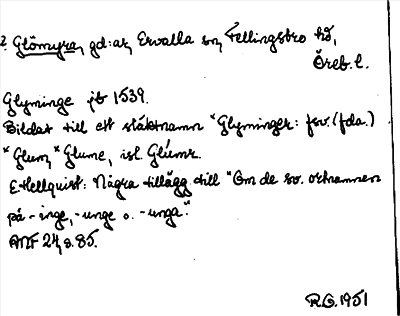 ? Glömyra, gd:ar, Ervalla sn, Fellingsbro hd,
Öreb. l.
Glyminge jb 1539.
Bildat till ett släktnamn *Glyminger: fsv. (fda.)
*Glum, *Glume, isl. Glúmr.
E Hellquist: Några tillägg till "Om de sv. ortnamnen
på -inge, -unge o. -unga".
ANF 24, s. 85.
R.G. 1951